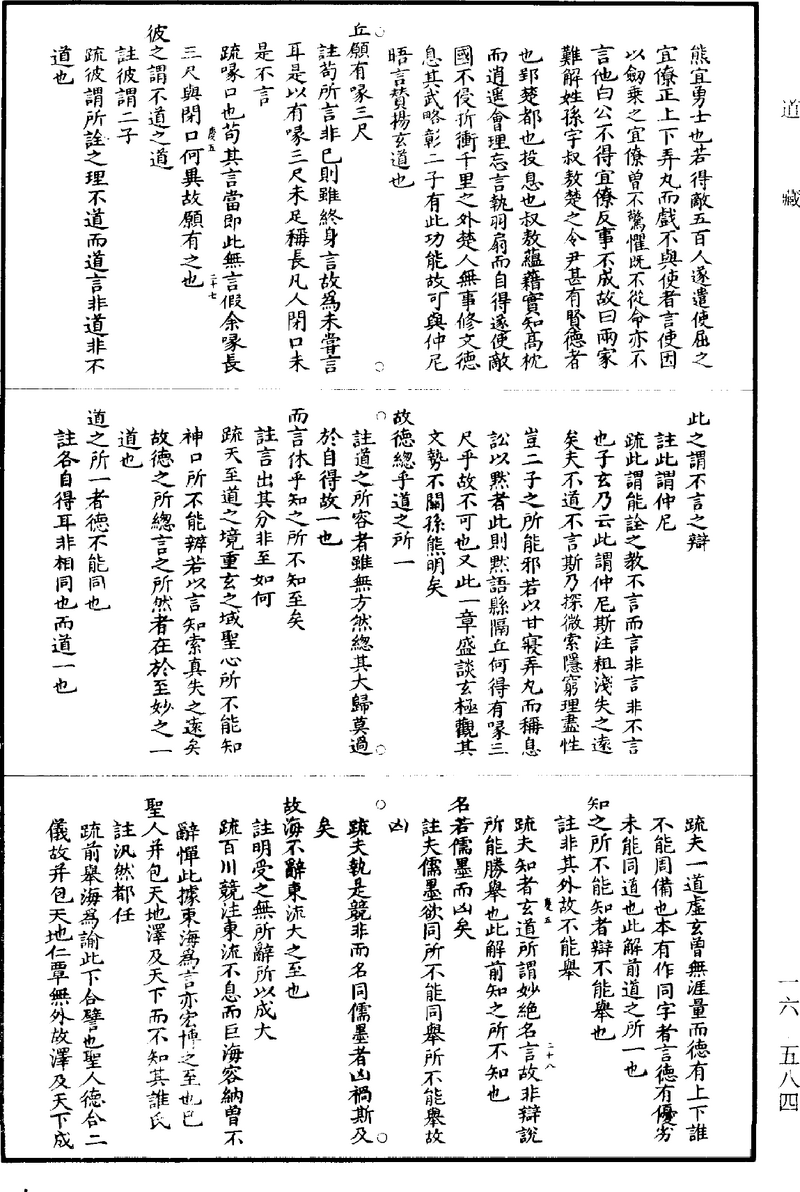 道藏
熊宜勇士也若得敵五百人遂遣使屈之
宜僚正上下弄丸而戲不與使者言使因
以劒乘之宜僚曾不驚懼既不從命亦不
言他白公不得宜僚反事不成故曰兩家
難解姓孫字叔敖楚之令尹甚有賢德者
也郢楚都也投息也叔敖蘊藉實知高枕
而逍遥會理忘言執羽扇而自得遂使敵
國不侵折衝千里之外楚人無事修文德
息其武略彰二子有此功能故可與仲尼
晤言賛揚玄道也
丘願有喙三尺
註苟所言非已則雖終身言故為未甞言
耳是以有喙三尺未足稱長凡人閉口未
是不言
疏喙口也苟其言當即此無言假余喙長
三尺與閉口何異故願有之也
慶五
二十七
彼之謂不道之道
註彼謂二子
疏彼謂所詮之理不道而道言非道非不
道也
此之謂不言之辯
註此謂仲尼
疏此謂能詮之教不言而言非言非不言
也子玄乃云此謂仲尼斯注粗淺失之遠
矣夫不道不言斯乃探微索隱窮理盡性
豈二子之所能邪若以甘寢弄丸而稱息
訟以黙者此則黙語縣隔丘何得有喙三
尺乎故不可也又此一章盛談玄極觀其
文勢不關孫熊明矣
故德總乎道之所一
註道之所容者雖無方然總其大歸莫過
於自得故一也
而言休乎知之所不知至矣
註言出其分非至如何
疏夭至道之境重玄之域聖心所不能知
神口所不能辨若以言知索真失之遠矣
故德之所總言之所然者在於至妙之一
道也
道之所一者德不能同也
註各自得耳非相同也而道一也
疏夫一道虛玄曾無涯量而德有上下誰
不能周備也本有作同字者言德有優劣
未能同道也此解前道之所一也
知之所不能知者辯不能舉也
註非其外故不能舉
慶五
二十八
疏夫知者玄道所謂妙絶名言故非辯說
所能勝舉也此解前知之所不知也
名若儒墨而凶矣
註夫儒墨欲同所不能同舉所不能舉故
凶
疏夫執是競非而名同儒墨者凶禍斯及
矣
故海不辭東流大之至也
註明受之無所辭所以成大
疏百川競注東流不息而巨海容納曾不
辭憚此據東海為言亦宏博之至也已
聖人并包天地澤及天下而不知其誰氏
註汎然都任
疏前舉海為諭此下合譬也聖人德合二
儀故并包天地仁覃無外故澤及天下成
一六 五八四